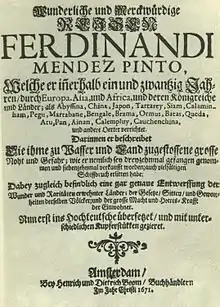 Wunderliche und Merckwürdige
REISEN
FERDINANDI
MENDEZ PINTO,
Welche er iñerhalb ein und zwantzig Jah-
ren / durch Europa, Asia, und Africa, und deren Königreiche
und Länder; als Abyssina, China, Japon, Tartarey, Siam, Calamin-
ham, Pegu, Martabane, Bengale, Brama, Ormus, Batas, Queda,
Aru, Pan, Ainan, Calempluy, Cauchenchina,
und andere Oerter verrichtet.
Darinnen er beschreibet
Die ihme zu Wasser und Land zugestossene grosse
Noht und Gefahr; wie er nemlich sey dreyzehnmal gefangen genom-
men und siebenzehnmal verkaufft worden; auch vielfältigen
Schiffbruch erlitten habe.
Dabey zugleich befindlich eine gar genaue Entwerffung der
Wunder und Raritäten erwehnter Länder; der Gesetze / Sitten / und Gewon-
heiten derselben Völcker; und der grosse Macht und Heeres-Krafft
der Einwohner.
Nun erst ins Hochteutsche übersetzet / und mit unter-
schiedlichen Kupferstücken gezieret.
Amsterdam /
Bey Henrich und Dietrich Boom / Buchhändlern
Im Jahr Christi 1671.